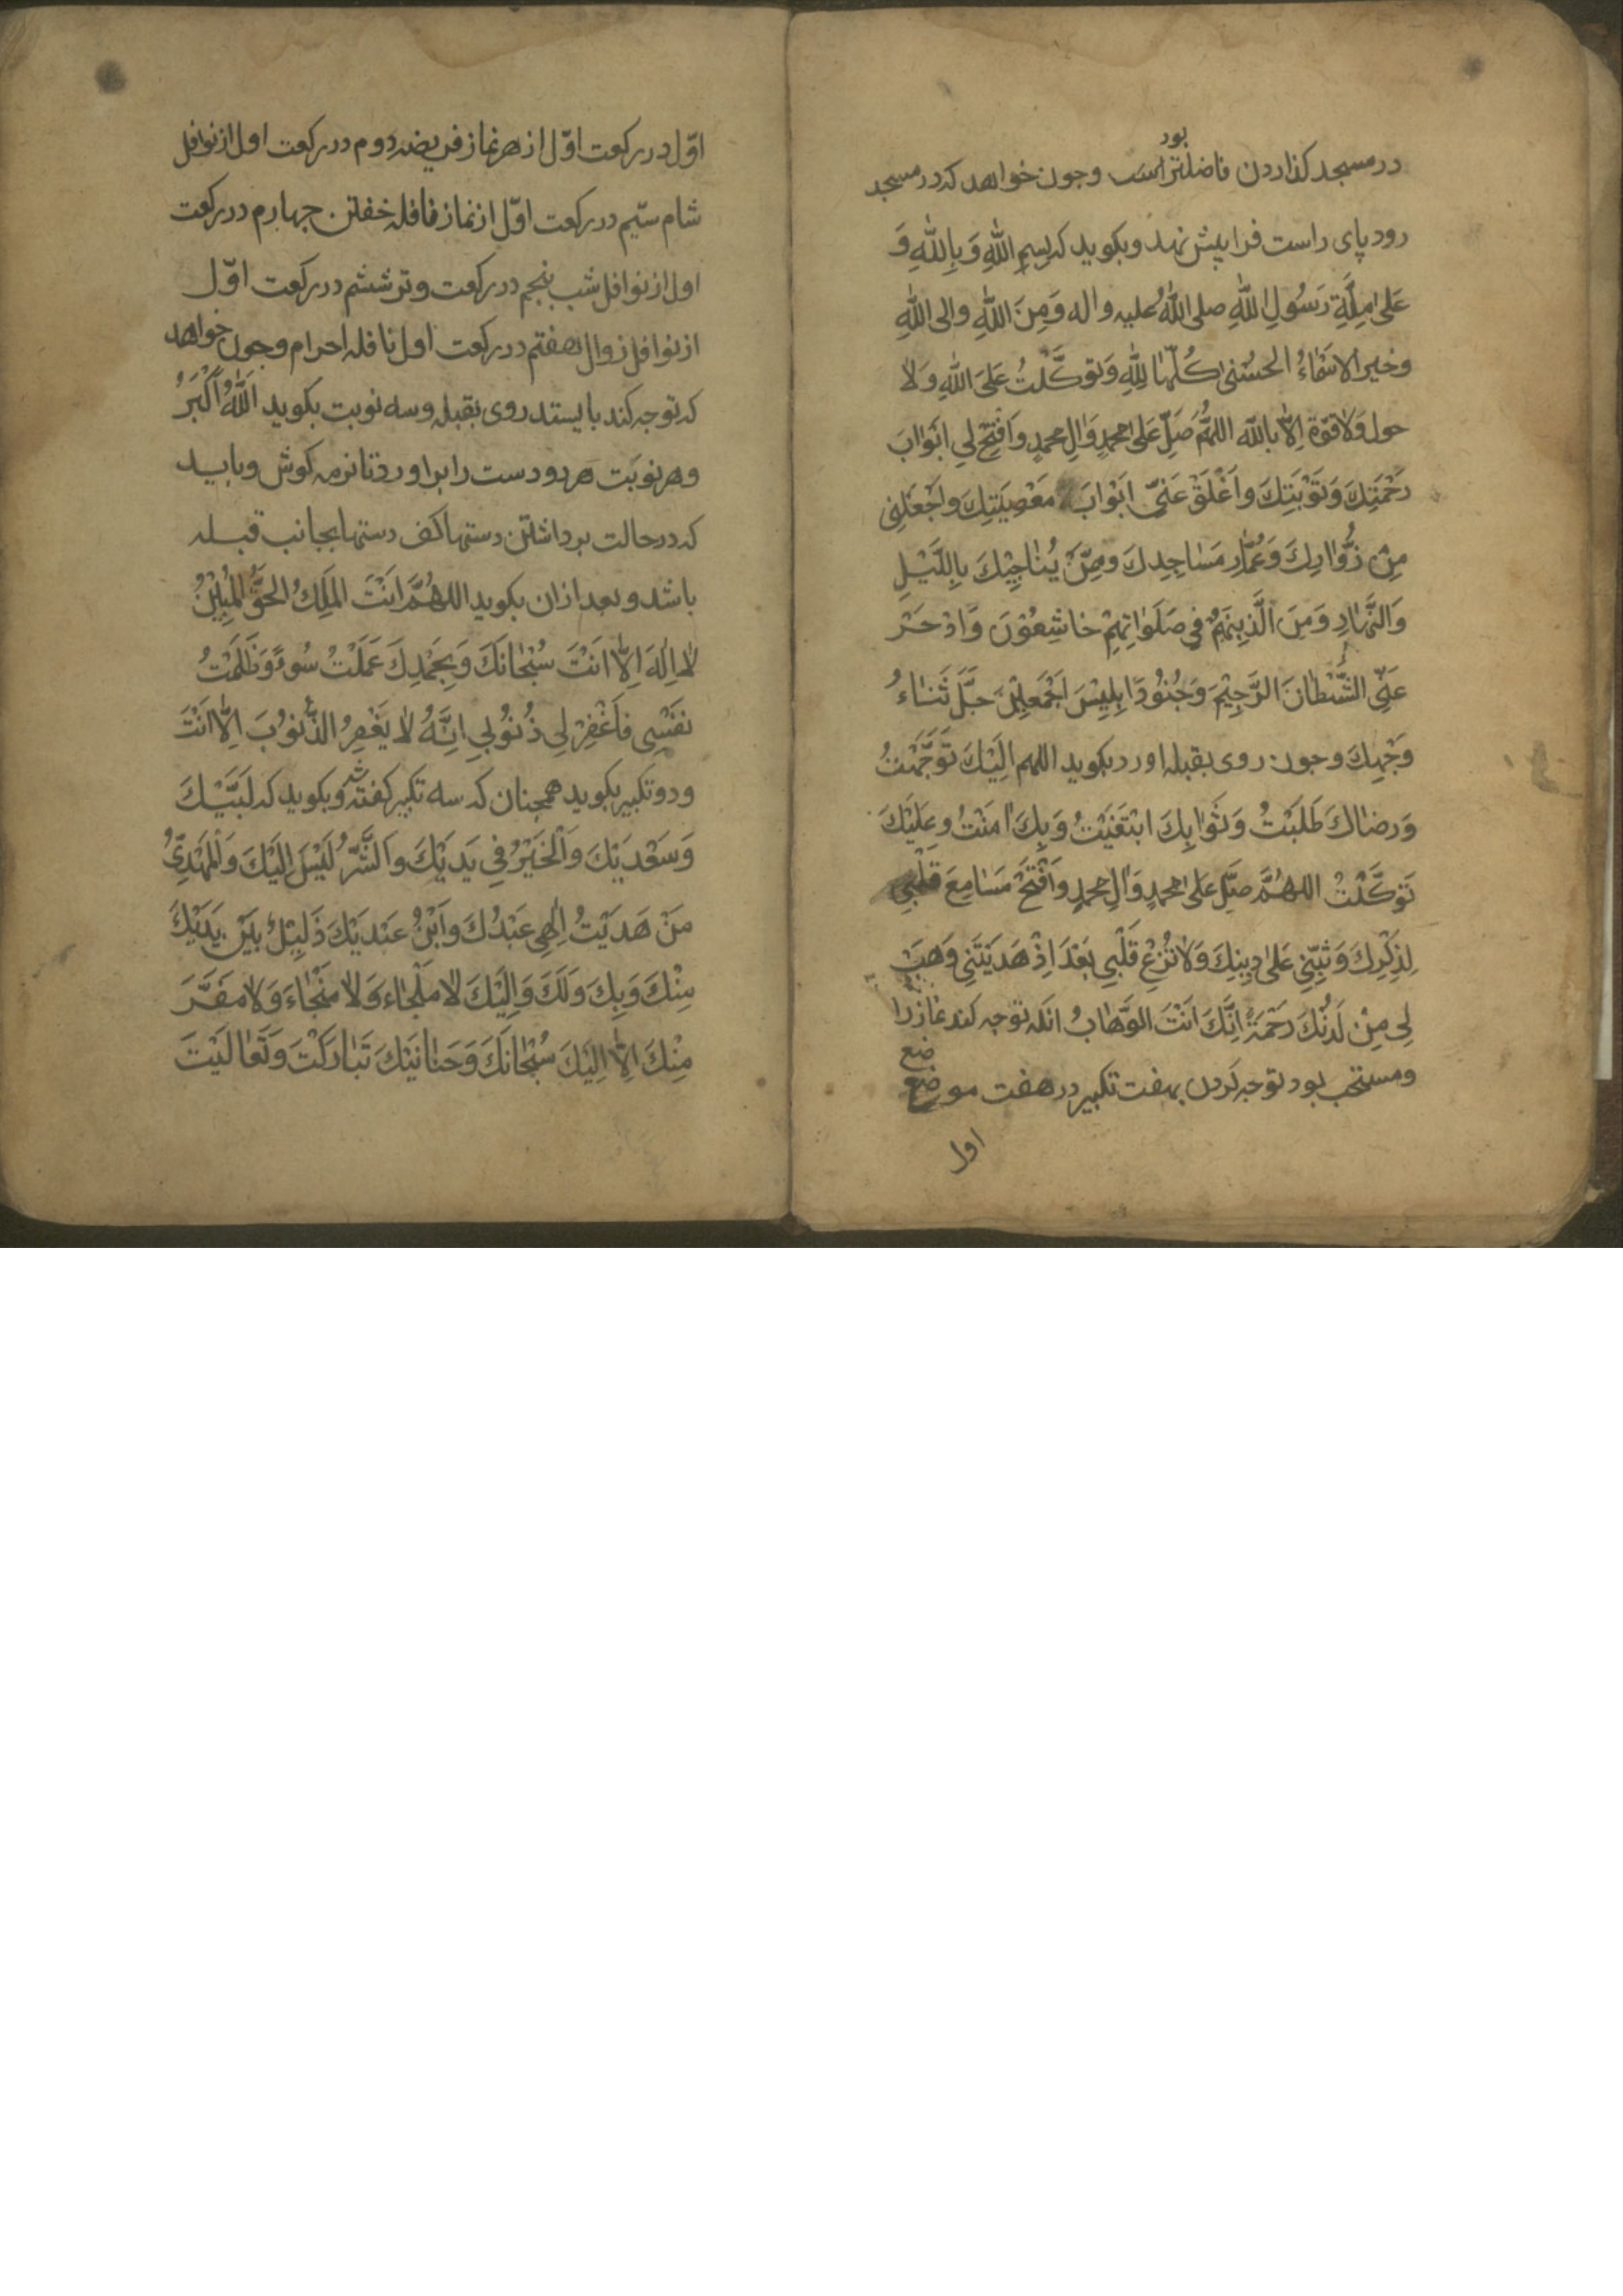 بود
در مسجد کذاردن فاضلتر است وجون خواهد که در مسجد
رود پای راست فرا پیش نهد و بکوید که بِسمِ اللّٰهِ وَ بِاللّٰهِ وَ
عَلیٰ مِلَّةِ رَسُولِ اللّٰهِ صلی اللّٰهُ علیه واله وَمِنَ اللّٰهِ والی اللّٰهِ
وخیر الاسْمَاءُ الحُسْنیٰ کُلّهَا لِلّٰهِ وَتوکَّلْتُ عَلیَ اللّٰهِ وَلا
حول وَلاقوّة اِلاّ باللّه اللهُمَّ صَلِّ عَلیٰ محمدٍ وَالِ محمدٍ وافْتِحْ لِی ابْوَابَ
رَحْمَتِكَ وَتَوْبَتِكَ واَغْلَقْ عَنّی ابْوابَ مَعْصِیَتِكَ واجْعَلْنِی
مِنْ زُوّارِكَ وَعُمّارِ مَسَاجِدِكَ ومِمَّنْ یُنَاجِیْكَ بِاللَّیْلِ
وَالنَّهَارِ وَمِنَ الَّذِینَهُمْ فِی صَلَوَاتِهِمْ خَاشِعُوْنَ وَادْحَرْ
عَنّی الشَّیْطَانَ الرَّجِیْمَ وَجُنُودَ اِبلِیْسَ اَجْمَعِیْنَ جَلَّ ثَنَاءُ
وَجْهِكَ وجون روی بقبله اورد بکوید اللهم اِلَیْكَ تَوَجَّهْتُ
وَرضَاكَ طَلَبْتُ وَثَوَابِكَ ابْتَغَیْتُ وَبِكَ امَنْتُ وعَلَیْكَ
تَوَکَّلْتُ اللهُمَّ صَلِّ عَلیٰ محمدٍ وَالِ محمدٍ وافْتَحْ مَسَامِعَ قَلْبِی
لِذِکْرِكَ وَثَبِّتنِی عَلیٰ دِینِكَ وَلاتُزِغْ قَلْبِی بَعْدَ اِذْ هَدَیْتَنِی وَهَبْ
لِی مِنْ لَدُنْكَ رَحْمَةً اِنَّكَ انْتَ الوَهّابُ انکه توجه کند نمازرا
ضع
ومستحب بود توجه کردن بهفت تکبیر در هفت موضع
اول
اوّل در رکعت اوّل از هر نماز فریضه دوم در رکعت اول از نوافل
شام سیّم در رکعت اوّل از نماز نافله خفتن جهارم در رکعت
اول از نوافل شب بنجم در رکعت وتر ششم در رکعت اوّل
از نوافل زوال هفتم در رکعت اول نافله احرام وجون خواهد
که توجه کند بایستد روی بقبله و سه نوبت بکوید اَللّٰهُ اَکْبَرُ
وهر نوبَت هر دو دست را براورد تا نرمه کوش وباید
که در حالت برداشتن دستها کف دستها بجانب قبله
باشد و بعد ازان بکوید اللهُمَّ انْتَ المَلِكُ الحَقُّ المُبِیْنُ
لا اِلٰهَ اِلاّ انَتَ سُبْحَانَكَ وَبِحَمْدِكَ عَمَلْتُ سُوءً وَظَلَمْتُ
نَفْسِی فاَغْفِرْ لِی ذُنُوبِی اِنَّهُ لا یَغْفِرُ الذُّنوُبَ اِلاّ انْتَ
ودو تکبیر بکوید همجنان که سه تکبیر کفته شد وبکوید که لَبَّیْكَ
وَسَعْدَیْكَ وَالْخَیْرُ فِی یَدَیْكَ وَالشَّرُّ لَیْسَ اِلَیْكَ وَالْمَهْدِیُّ
مَنْ هَدَیْتُ اِلٰهِی عَبْدُكَ واَبْنُ عبْدَیْكَ ذَلِیْلٌ بَیْنَ یَدَیْكَ
مِنْكَ وَبِكَ وَلَكَ وَاِلَیْكَ لا مَلْجَاء وَلا مَنْجَاءَ وَلا مَفَرَّ
مِنْكَ اِلاّ اِلَیْكَ سُبْحَانَكَ وَحَنَانَیْكَ تَبَارَكْتَ وَتَعَالَیْتَ